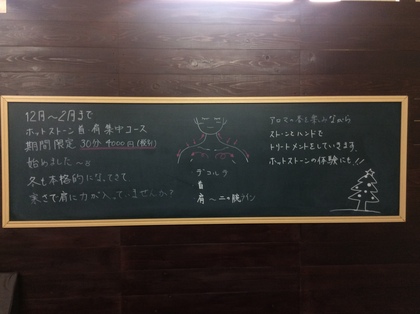 12月〜2月まで
ホットストーン首・肩集中コース
期間限定 30分 4000円(税別)
始めました〜
冬も本格的になってきて
寒さで肩に力が入っていませんか?
デコルテ
首
肩〜二の腕ライン
アロマの香を楽しみながら
ストーンとハンドで
トリートメントをしていきます。
ホットストーンの体験にも!!